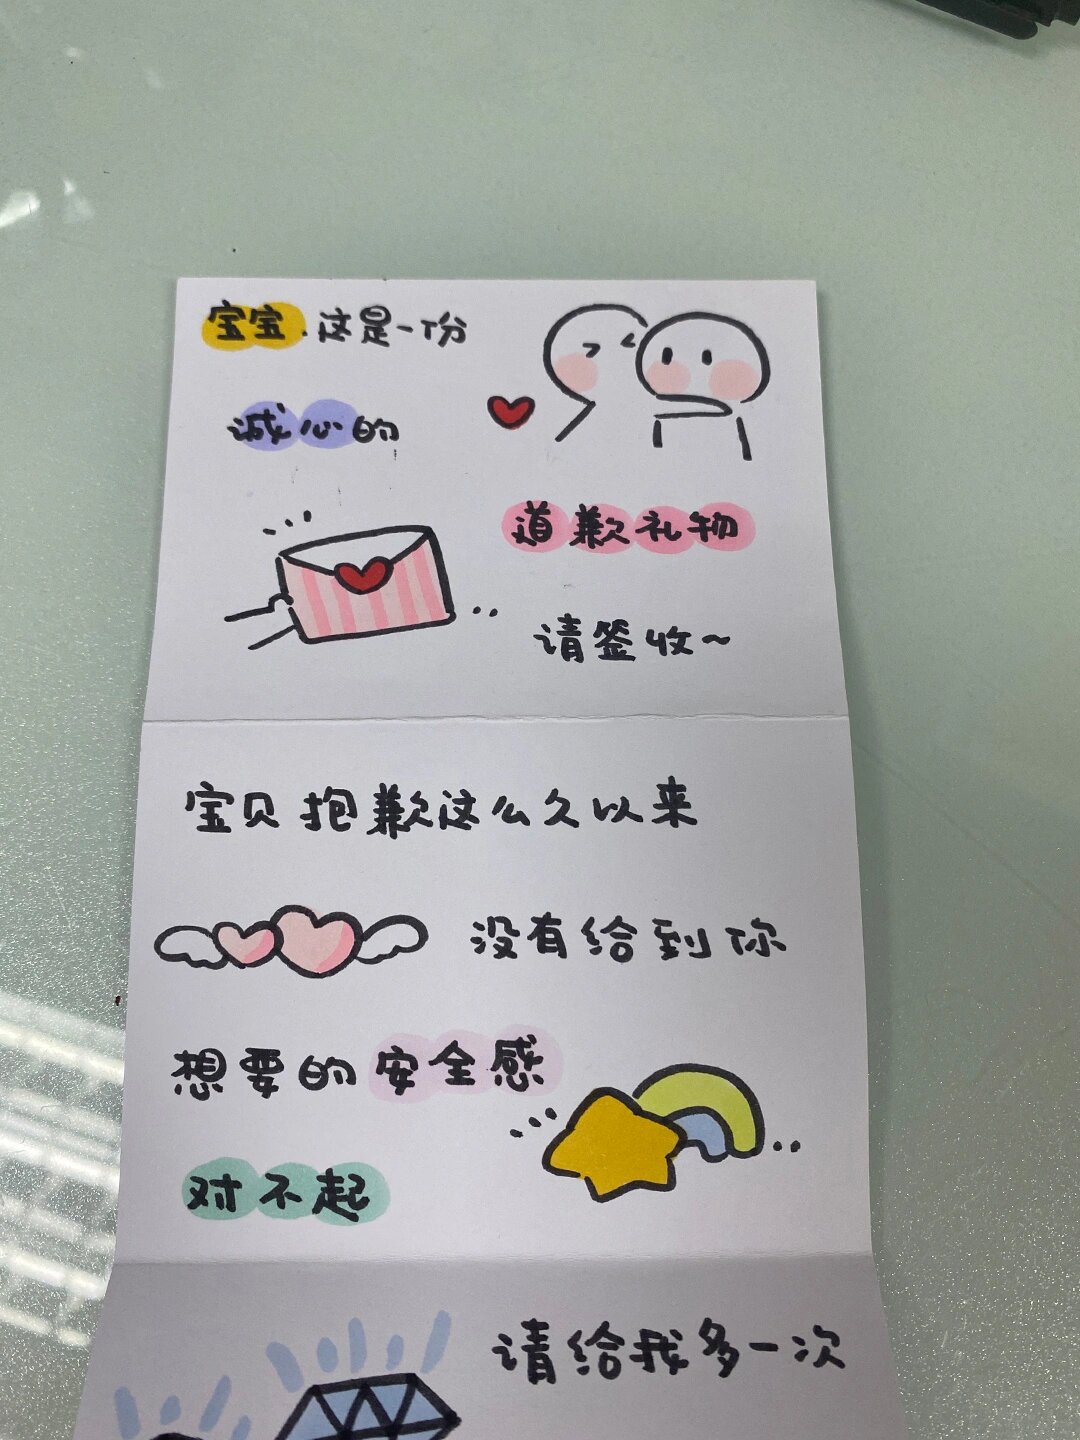 宝宝.这是一份
诚心的
道歉礼物
请签收~
宝贝抱歉这么久以来
没有给到你
想要的安全感
对不起
请给我多一次